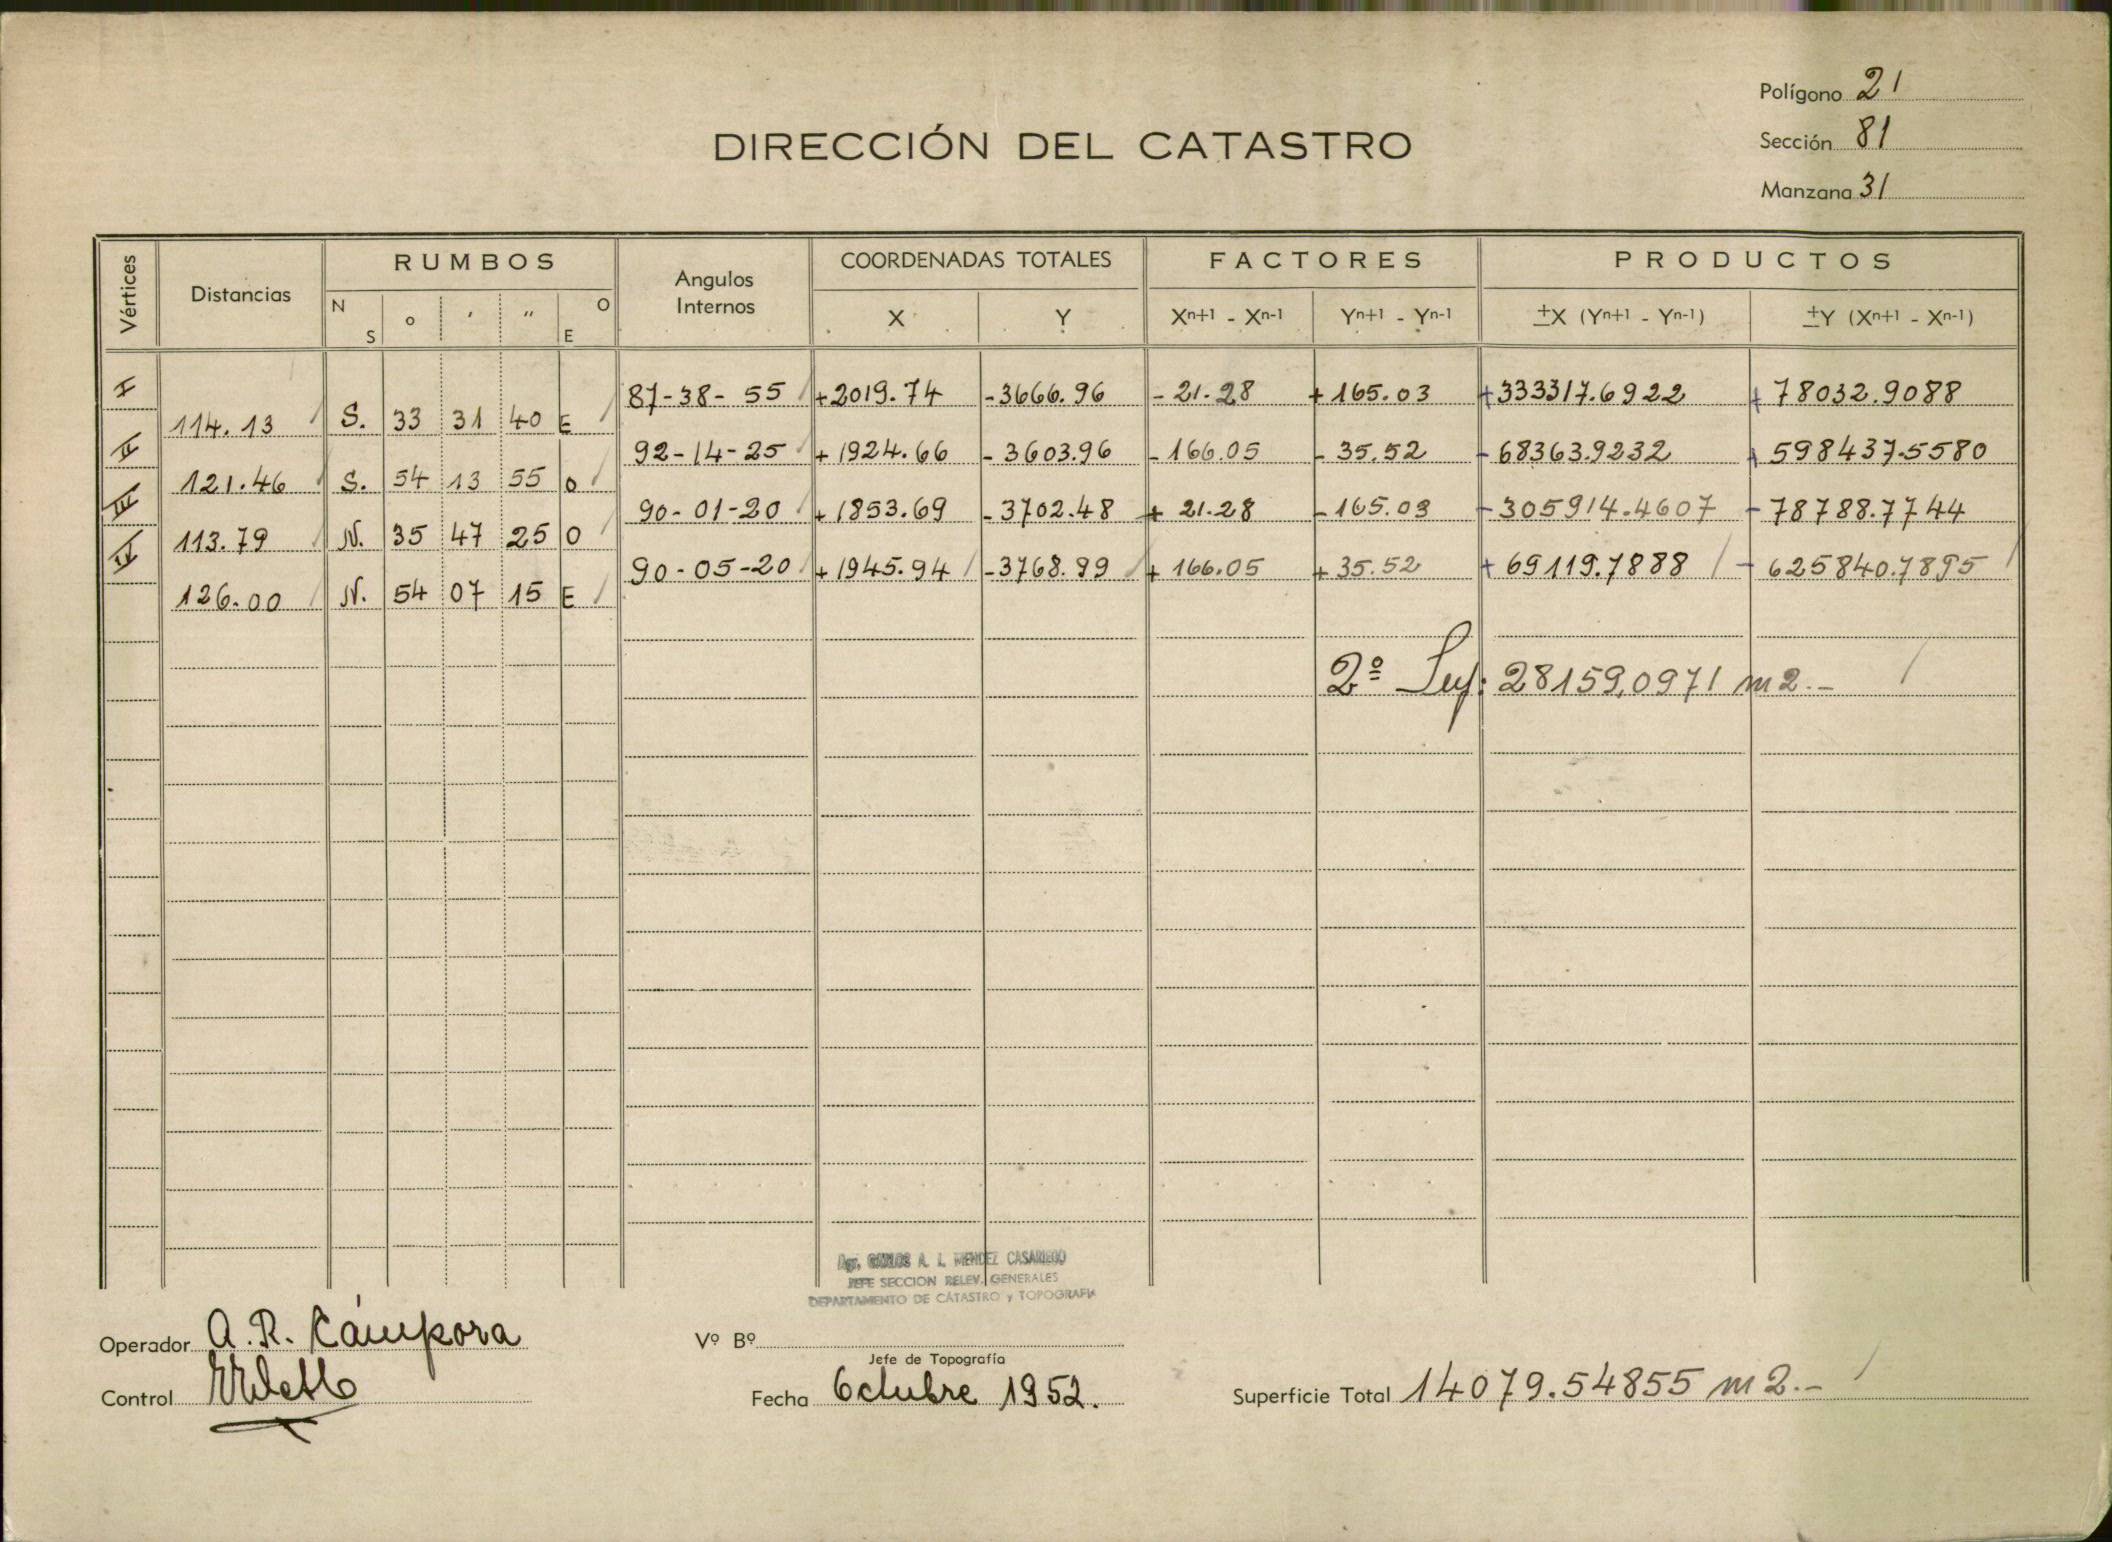 Polígono 21
DIRECCIÓN DEL CATASTRO
Sección 81
Manzana 31
Vértices Distancias RUMBOS Angulos Internos COORDENADAS TOTALES FACTORES PRODUCTOS
N S o ' " O E X Y Xn+1 - Xn-1 Yn+1 - Yn-1 ±X (Yn+1 - Yn-1) ±Y (Xn+1 - Xn-1)
I 87-38-55 +2019.74 -3666.96 -21.28 +165.03 +333317.6922 +78032.9088
114.13 S. 33 31 40 E
II 92-14-25 +1924.66 -3603.96 -166.05 -35.52 -68363.9232 +598437.5580
121.46 S. 54 13 55 O
III 90-01-20 +1853.69 -3702.48 +21.28 -165.03 -305914.4607 -78788.7744
113.79 N. 35 47 25 O
IV 90-05-20 +1945.94 -3768.99 +166.05 +35.52 +69119.7888 -625840.7895
126.00 N. 54 07 15 E
2º Sup: 28159,0971 m2.-
Agr. CARLOS A. L. MENDEZ CASARIEGO
JEFE SECCION RELEV. GENERALES
DEPARTAMENTO DE CATASTRO y TOPOGRAFIA
Operador A. R. Cámpora
Vº Bº
Jefe de Topografía
Control
Fecha Octubre 1952.
Superficie Total 14079.54855 m2.-